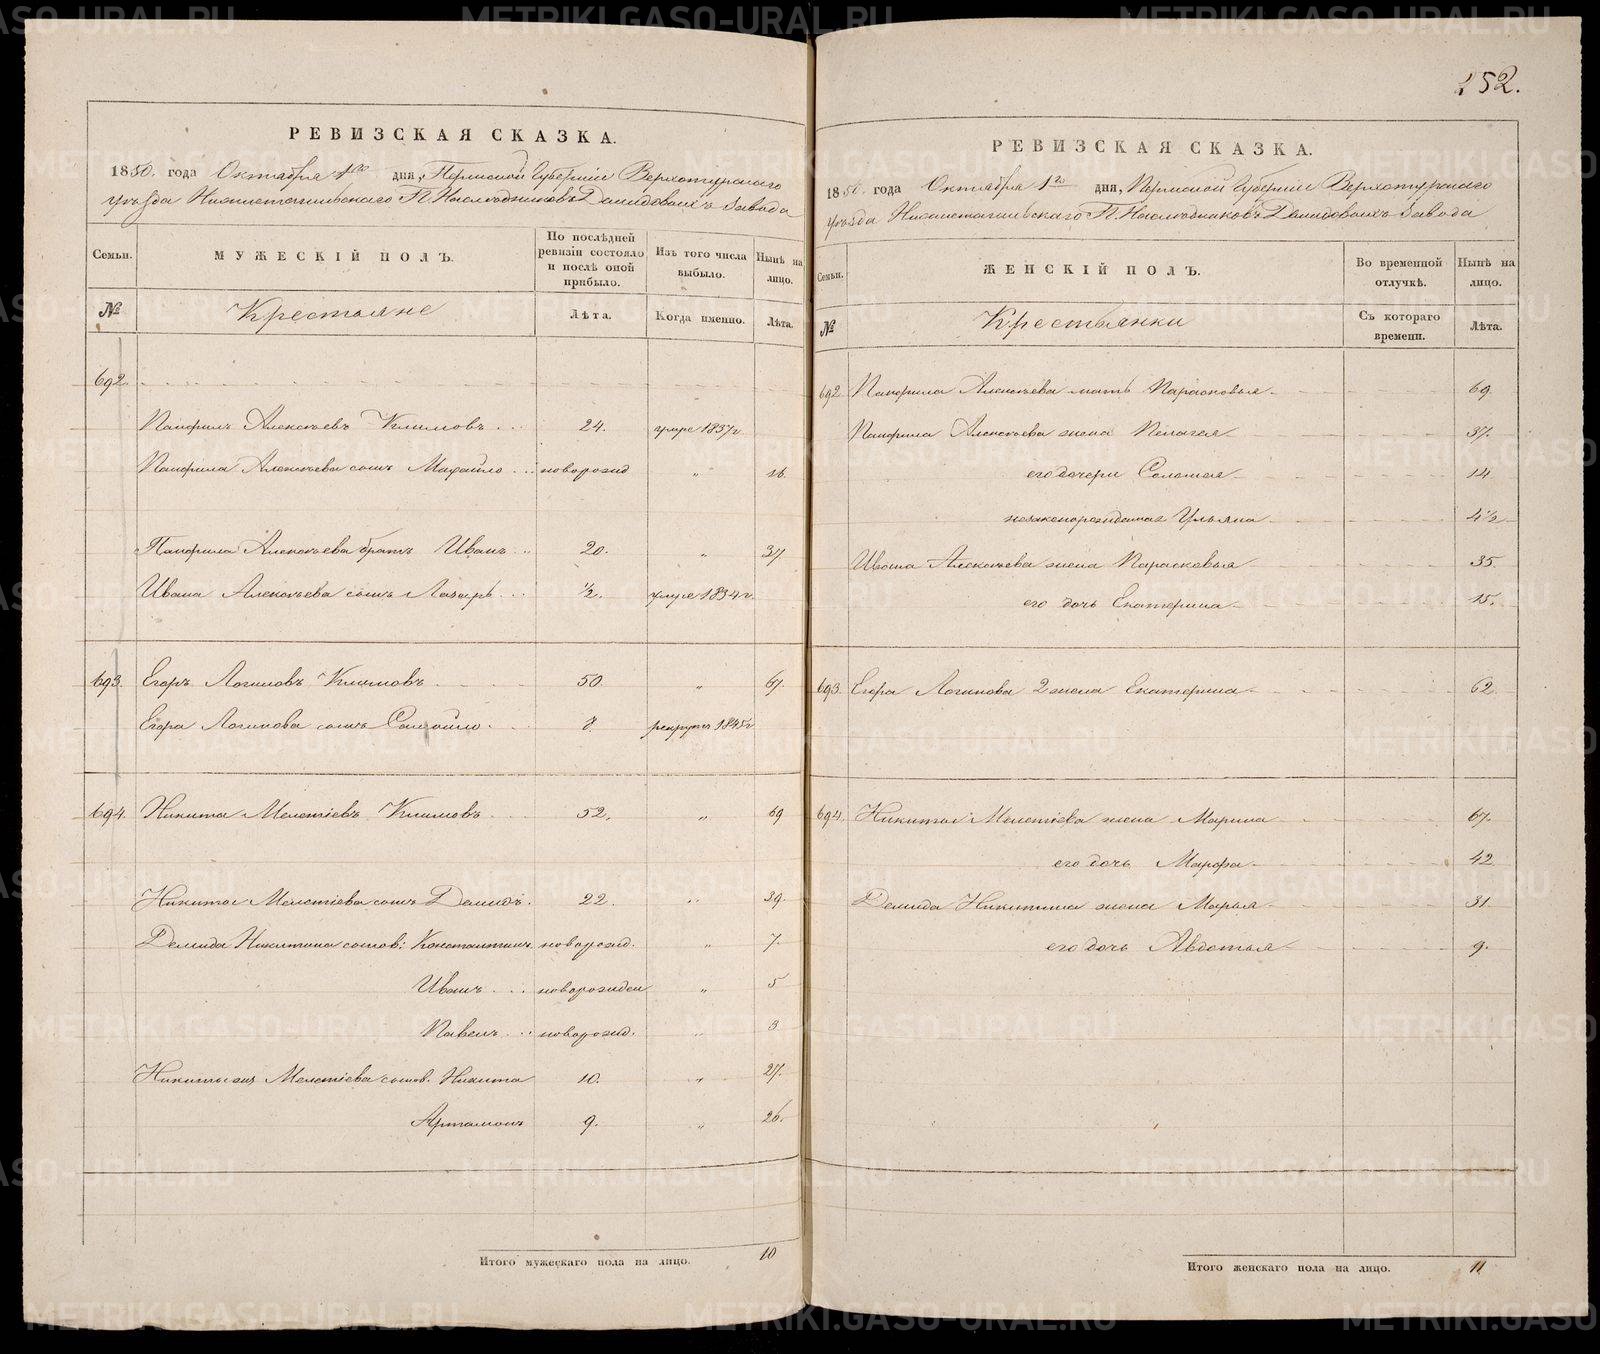 252.
РЕВИЗСКАЯ СКАЗКА.
1850. года Октября 1го дня, Пермской Губернии Верхотурскаго
уезда Нижнетагильскаго Г.Г. Наследниковъ Демидовыхъ завода
Семьи. МУЖЕСКІЙ ПОЛЪ. По послѣдней ревизіи состояло и послѣ оной прибыло. Изъ того числа выбыло. Нынѣ на лицо.
№ Крестьяне Лѣта. Когда именно. Лѣта.
692.
Панфилъ Алексѣевъ Климовъ 24. умре 1837г
Панфила Алексѣева сынъ Михайло новорожд „ 16.
Панфила Алексѣева братъ Иванъ 20. „ 37
Ивана Алексѣева сынъ Лазарь 1/2. умре 1834г.
693. Егоръ Логиновъ Климовъ 50. „ 67.
Егора Логинова сынъ Самойло. рекрутъ 1845г
694. Никита Мелетіевъ Климовъ 52. „ 69
Никиты Мелетіева сынъ Демидъ. 22. „ 39.
Демида Никитина сынов: Константинъ новорожд. „ 7.
Иванъ новорожден „ 5
Павелъ новорожд. „ 3
Никиты Мелетіева сынов. Никита 10. „ 27.
Артамонъ 9. „ 26.
Итого мужескаго пола на лицо. 10
РЕВИЗСКАЯ СКАЗКА.
1850. года Октября 1го дня, Пермской Губерніи Верхотурскаго
уѣзда Нижнетагильскаго Г.Г. Наследниковъ Демидовыхъ завода
Семьи. ЖЕНСКІЙ ПОЛЪ. Во временной отлучкѣ. Нынѣ на лицо.
№ Крестьянки Съ котораго времени. Лѣта.
692 Панфила Алексѣева мать Парасковья 69.
Панфила Алексѣева жена Пелагея 37.
его дочери Соломея 14
незаконорожденная Ульяна 4 1/2
Ивана Алексѣева жена Парасковья 35.
его дочь Екатерина 15.
693. Егора Логинова 2 жена Екатерина 62
694. Никиты Мелетіева жена Марина 67.
его дочь Марфа 42
Демида Никитина жена Марья 31.
его дочь Авдотья 9.
Итого женскаго пола на лицо. 11
METRIKI.GASO-URAL.RU